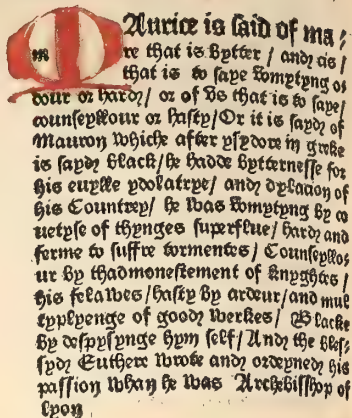 MAurice is said of ma/
re that is bytter / and as /
that is to saye vomptyng or
dour or hard / or of vs that is to saye/
counseyllour or hasty/Or it is sayd of
Mauron whiche after ysydore in greke
is sayd black/he hadde bytternesse for
his euylle ydolatrye/ and dylacion of
his Countrey/ he was vomptyng by co
uetyse of thynges superflue/ hard and
ferme to suffre tormentes / Counseyllo
ur by thadmonestement of knyghtes /
his felawes/hasty by ardeur/and mul
typlyenge of good werkes/ Blacke
by despysynge hym self/ And the bles/
syd Euthere wrote and ordeyned his
passion whan he was Archebisshop of
lyon